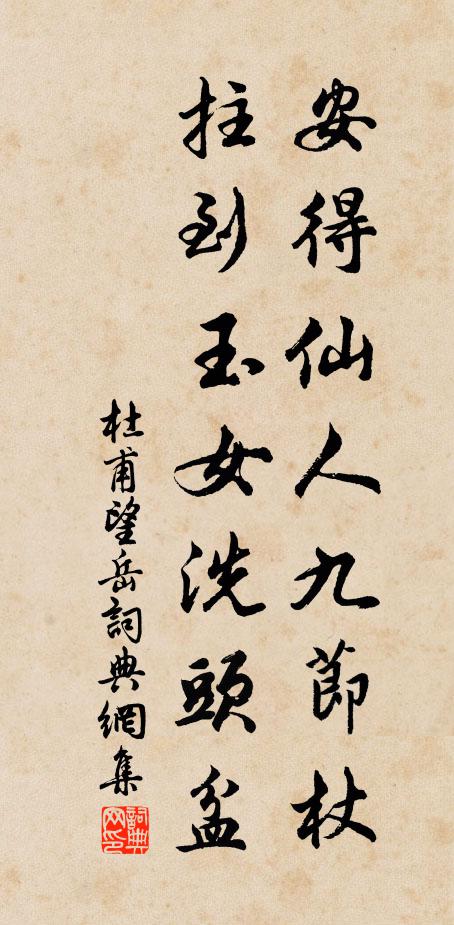 安得仙人九節杖
拄到玉女洗頭盆
杜甫望岳詞典網集
詞典網印